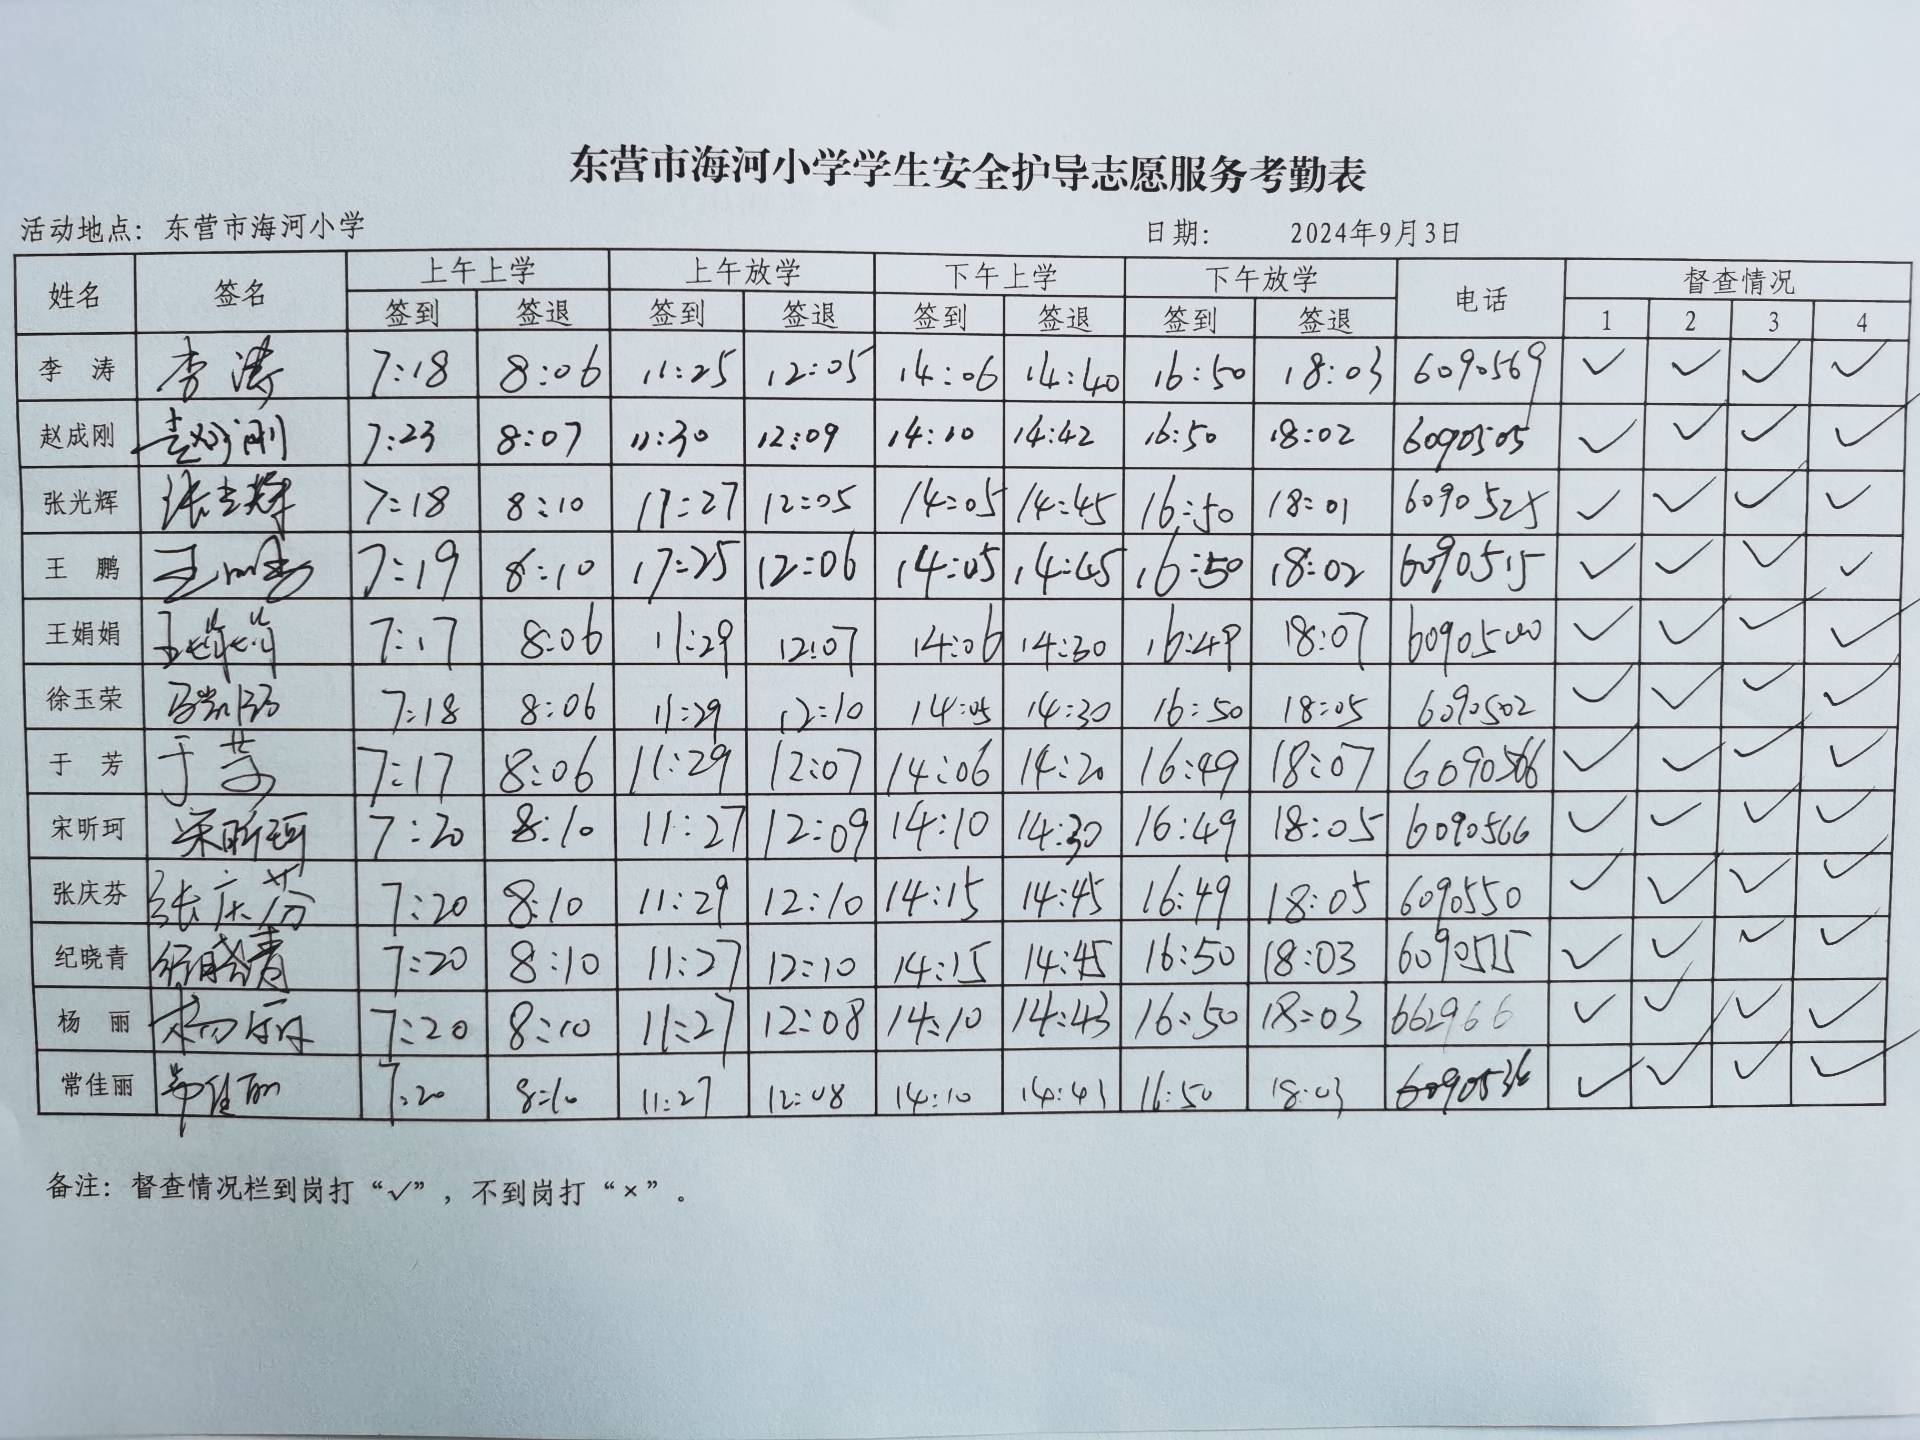 东营市海河小学学生安全护导志愿服务考勤表
活动地点：东营市海河小学 日期： 2024年9月3日
姓名 签名 上午上学 上午放学 下午上学 下午放学 电话 督查情况
签到 签退 签到 签退 签到 签退 签到 签退 1 2 3 4
李 涛 李涛 7:18 8:06 11:25 12:05 14:06 14:40 16:50 18:03 6090569 ✓ ✓ ✓ ✓
赵成刚 赵成刚 7:23 8:07 11:30 12:09 14:10 14:42 16:50 18:02 6090505 ✓ ✓ ✓ ✓
张光辉 张光辉 7:18 8:10 17:27 12:05 14:05 14:45 16:50 18:01 6090525 ✓ ✓ ✓ ✓
王 鹏 王鹏 7:19 8:10 17:25 12:06 14:05 14:45 16:50 18:02 6090515 ✓ ✓ ✓ ✓
王娟娟 7:17 8:06 11:29 12:07 14:06 14:30 16:49 18:07 6090500 ✓ ✓ ✓ ✓
徐玉荣 7:18 8:06 11:29 12:10 14:05 14:30 16:50 18:05 6090502 ✓ ✓ ✓ ✓
于 芳 于芳 7:17 8:06 11:29 12:07 14:06 14:20 16:49 18:07 ✓ ✓ ✓ ✓
宋昕珂 宋昕珂 7:20 8:10 11:27 12:09 14:10 14:30 16:49 18:05 6090566 ✓ ✓ ✓ ✓
张庆芬 张庆芬 7:20 8:10 11:29 12:10 14:15 14:45 16:49 18:05 6090550 ✓ ✓ ✓ ✓
纪晓青 纪晓青 7:20 8:10 11:27 12:10 14:15 14:45 16:50 18:03 ✓ ✓ ✓ ✓
杨 丽 杨丽 7:20 8:10 11:27 12:08 14:10 14:43 16:50 18:03 662966 ✓ ✓ ✓ ✓
常佳丽 常佳丽 7:20 8:10 11:27 12:08 14:10 14:43 16:50 18:03 6090536 ✓ ✓ ✓ ✓
备注：督查情况栏到岗打“✓”，不到岗打“×”。